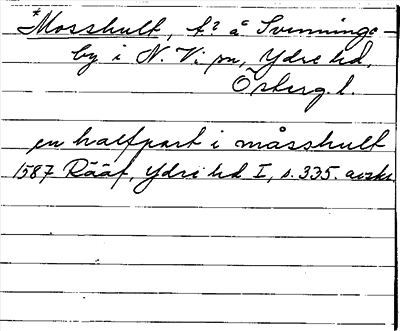 *Mosshult, t? å Svenninge-
by i N. Vi sn, Ydre hd,
Östergl.
en halfpart i måsshult
1587 Rääf, Ydre hd I, s. 335. avskr.